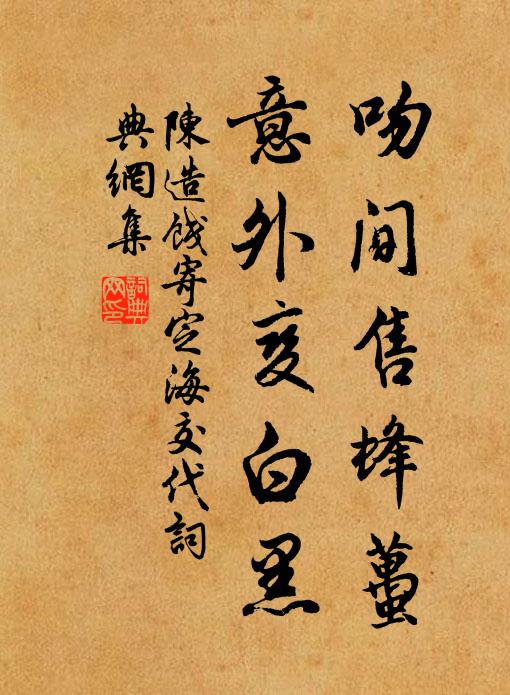 吻間售蜂蠆
意外变白黑
陳造餞寄定海交代詞
典網集
詞典網印